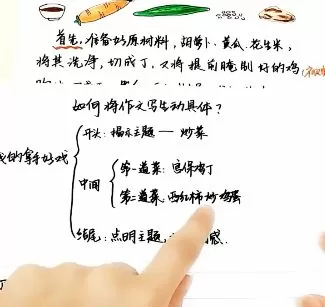 首先,准备好原材料,胡萝卜、黄瓜、花生米,
将其洗净,切成丁,又将提前腌制好的鸡
如何将作文写生动具体?
开头:揭示主题——炒菜
我的拿手好戏
中间
第一道菜:宫保鸡丁
第二道菜:西红柿炒鸡蛋
结尾:点明主题,
感.
丁